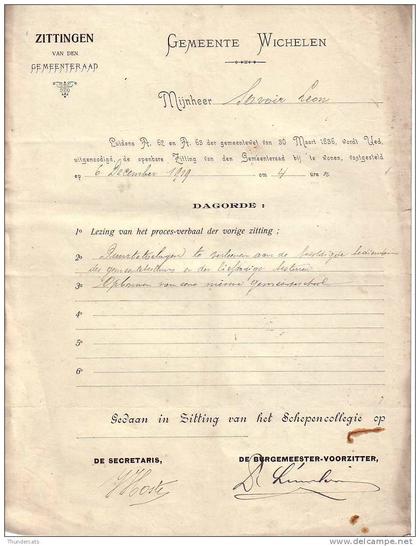 ZITTINGEN
VAN DEN
GEMEENTERAAD
GEMEENTE WICHELEN
Mijnheer Leon
Luidens Art. 62 en Art. 63 der gemeentewet van 30 Maart 1836, wordt Ued.
uitgenoodigd, de openbare Zitting van den Gemeenteraad bij te wonen, vastgesteld
op 6 December 1919 om 4 ure
DAGORDE :
1o Lezing van het proces-verbaal der vorige zitting ;
2o te verleenen aan de
des en der
3o Opbouwen van eene nieuwe gemeenteschool
4o
5o
6o
Gedaan in Zitting van het Schepencollegie op
DE SECRETARIS,
DE BURGEMEESTER-VOORZITTER,
Thundercats
delcampe.net